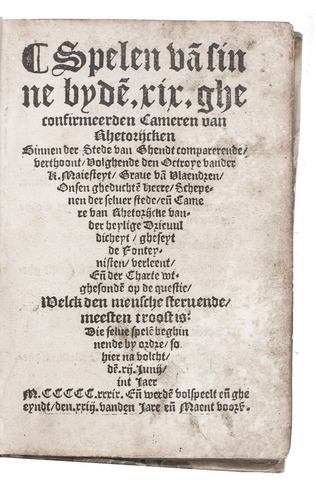 ¶ Spelen vā sin
ne bydē.xix.ghe
confirmeerden Cameren van
Rhetorijcken
Binnen der Stede van Ghendt comparerende/
verthoont/Volghende den Octroye vander
K.Maiesteyt/Graue vā Vlaendren/
Onsen gheduchtē Heere/Schepe-
nen der selver stede/eñ Came
re van Rhetorijcke van-
der heylige Drieuul
dicheyt / gheseyt
de Fontey-
nisten/verleent/
Eñ der Charte wt-
ghesondē op de questie/
Welck den mensche steruende/
meesten troost is:
Die selue spelē beghin
nende by ordre/so
hier na volcht/
dē.xij.Junij/
int Jaer
M.CCCCC.xxxix. Eñ werdē volspeelt eñ ghe
eyndt/den.xxiij.vanden Jare eñ Maent voors.